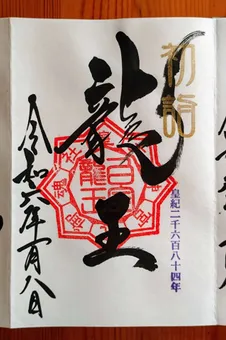 初詣
皇紀二千六百八十四年
龍王
令和六年一月八日